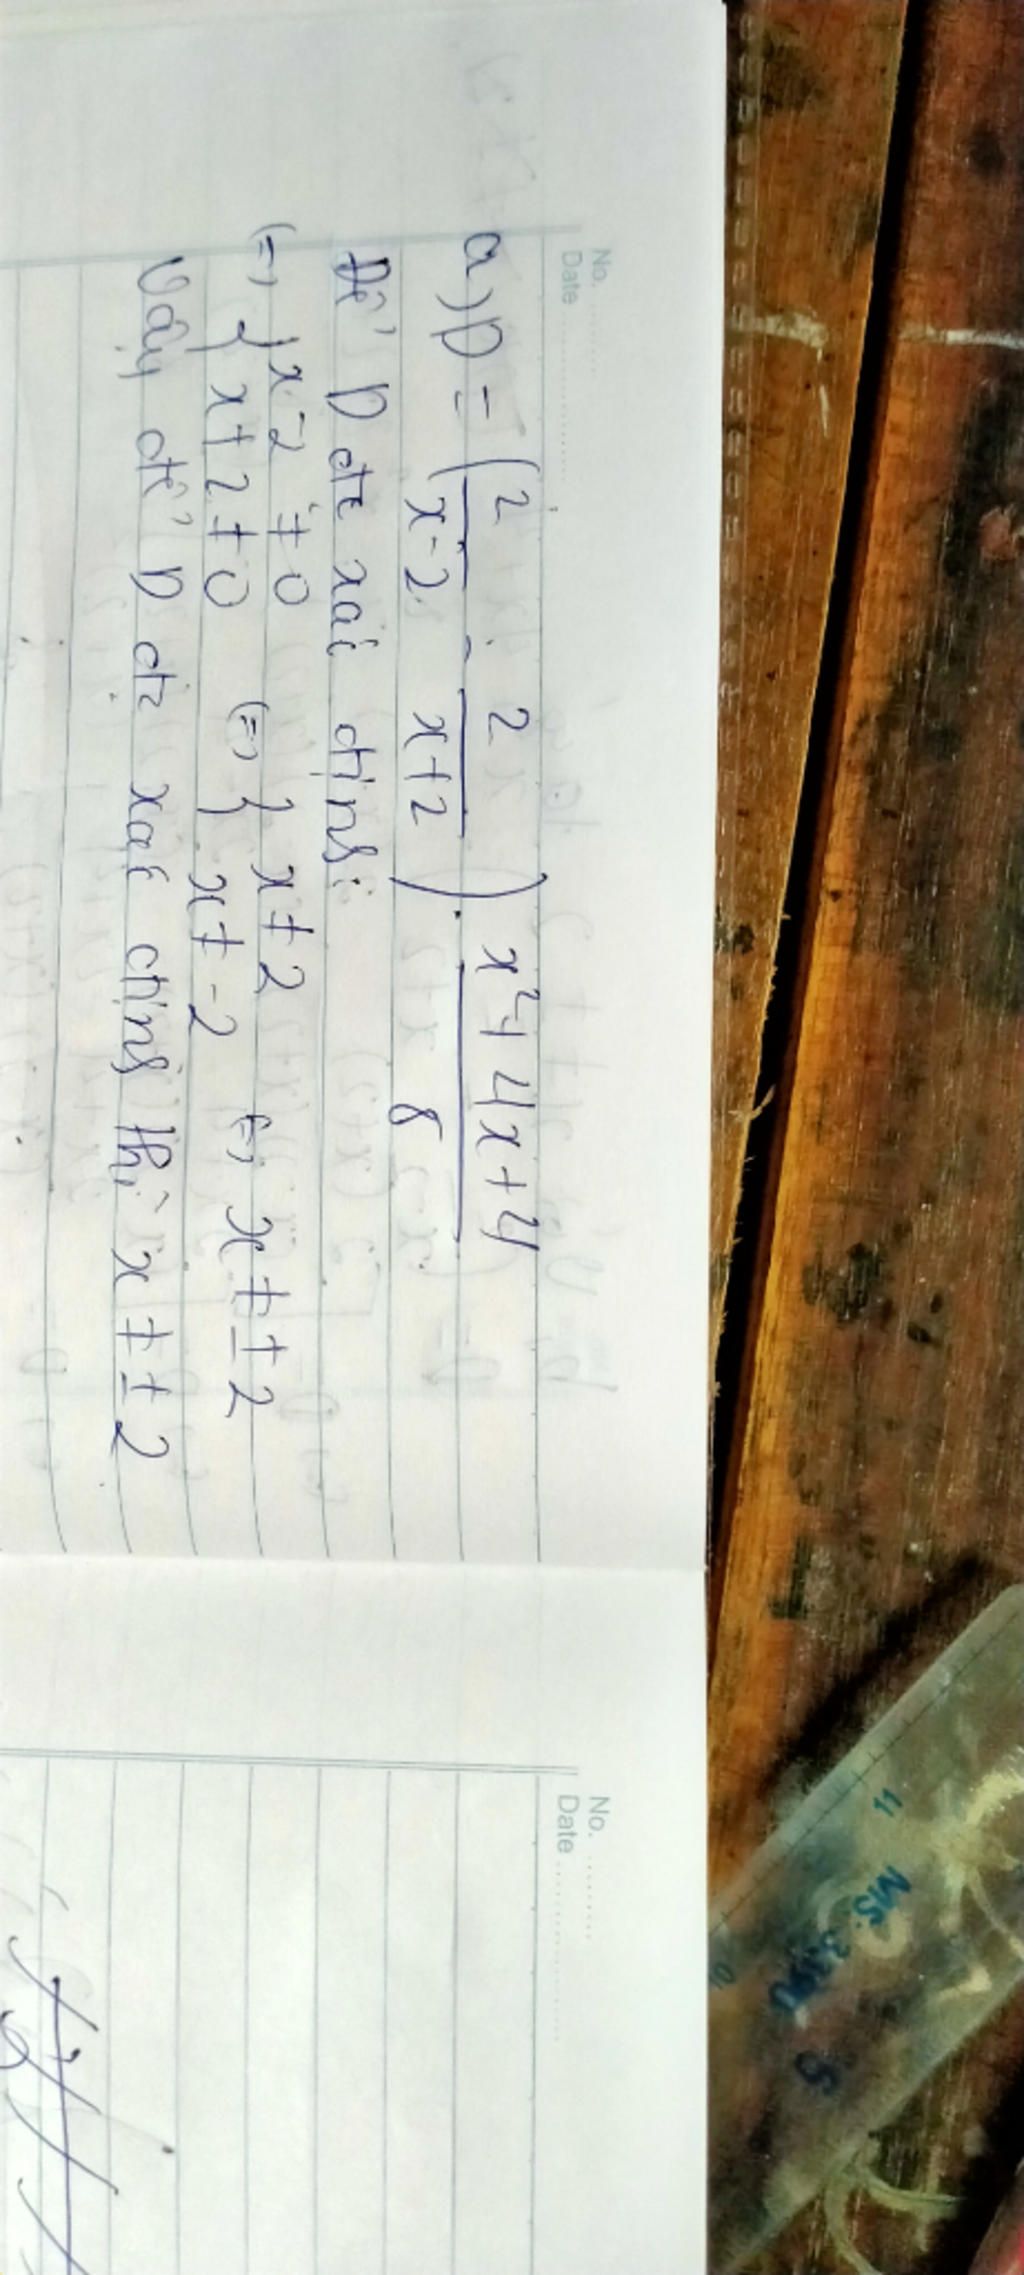 No. ..........
Date ....................
a) D = ( 2/(x-2) - 2/(x+2) ) . (x²+4x+4)/8
Để D đc xác định:
(=) { x-2 ≠ 0 (=) { x ≠ 2 (=) x ≠ ±2
x+2 ≠ 0 x ≠ -2
Vậy để D đc xác định thì x ≠ ±2
No. ..........
Date ....................
11
10